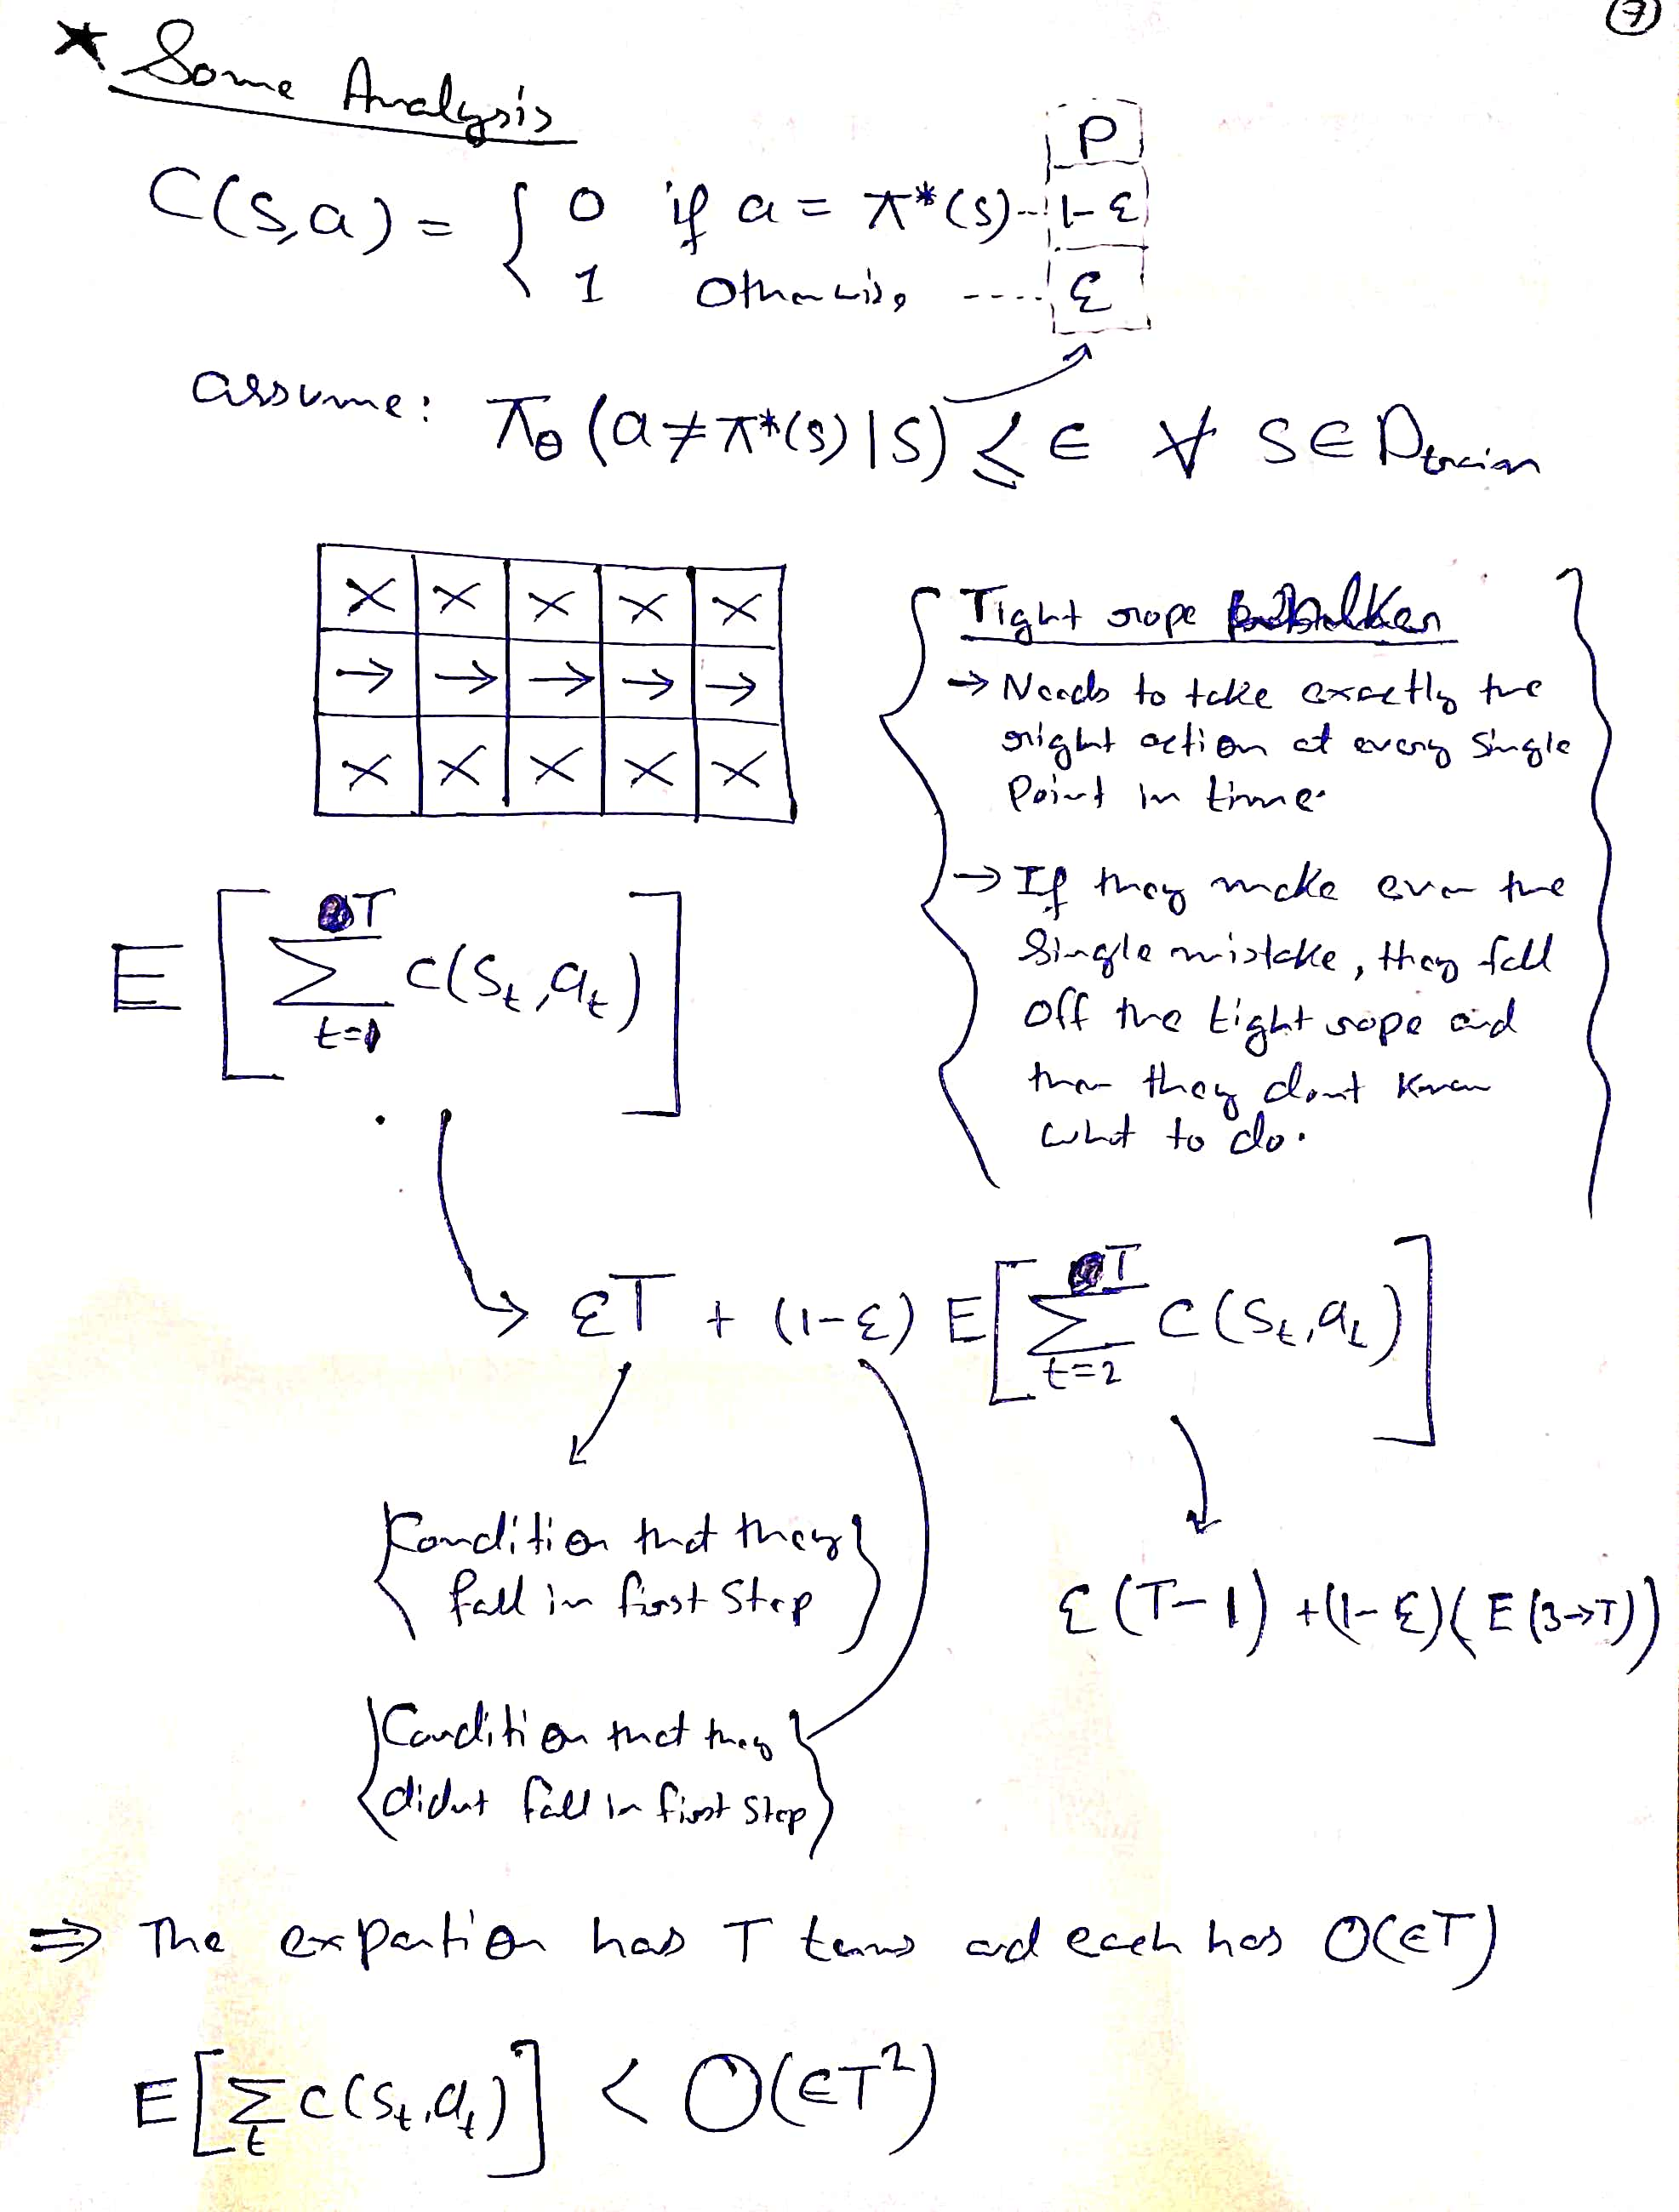 7
* Some Analysis
P
C(s,a) = { 0 if a = π*(s) ---- 1-ε
1 Otherwise ---- ε
assume: πθ (a ≠ π*(s) | s) ≤ ∈ ∀ s ∈ Dtrain
× × × × ×
→ → → → →
× × × × ×
Tight rope walker
→ Needs to take exactly the
right action at every single
Point in time.
→ If they make even the
Single mistake, they fall
off the tight rope and
then they dont know
what to do.
E [ Σ_{t=1}^{T} c(s_t, a_t) ]
→ εT + (1-ε) E [ Σ_{t=2}^{T} c(s_t, a_t) ]
{Condition that they
fall in first step}
ε(T-1) + (1-ε)(E(3→T))
{Condition that they
didnt fall in first step}
⇒ The expantion has T terms and each has O(∈T)
E [ Σ_t c(s_t, a_t) ] < O(∈T²)